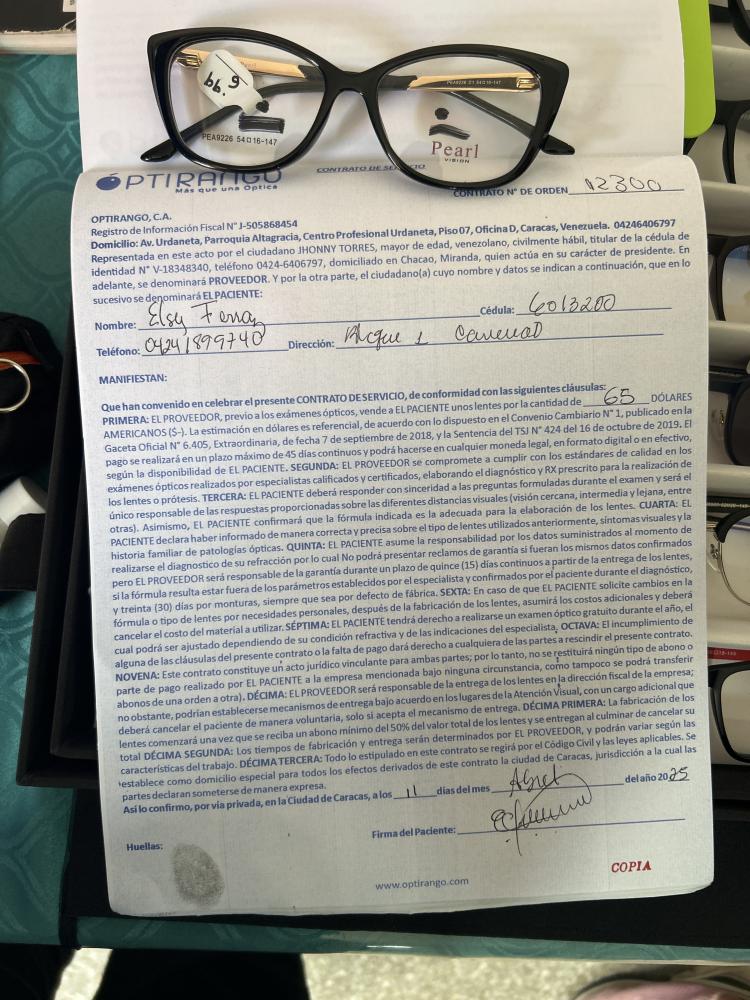 66.9
PEA9226 54□16-147
PEA9226 C1 54□16-147
Pearl
VISION
OPTIRANGO
Más que una Optica
CONTRATO DE SERVICIO
CONTRATO N° DE ORDEN 12300
OPTIRANGO, C.A.
Registro de Información Fiscal N° J-505868454
Domicilio: Av. Urdaneta, Parroquia Altagracia, Centro Profesional Urdaneta, Piso 07, Oficina D, Caracas, Venezuela. 04246406797
Representada en este acto por el ciudadano JHONNY TORRES, mayor de edad, venezolano, civilmente hábil, titular de la cédula de
identidad N° V-18348340, teléfono 0424-6406797, domiciliado en Chacao, Miranda, quien actúa en su carácter de presidente. En
adelante, se denominará PROVEEDOR. Y por la otra parte, el ciudadano(a) cuyo nombre y datos se indican a continuación, que en lo
sucesivo se denominará EL PACIENTE:
Nombre: Elsy Cédula: 6013200
Teléfono: 04241899740 Dirección: 1
MANIFIESTAN:
Que han convenido en celebrar el presente CONTRATO DE SERVICIO, de conformidad con las siguientes cláusulas:
PRIMERA: EL PROVEEDOR, previo a los exámenes ópticos, vende a EL PACIENTE unos lentes por la cantidad de 65 DÓLARES
AMERICANOS ($-). La estimación en dólares es referencial, de acuerdo con lo dispuesto en el Convenio Cambiario N° 1, publicado en la
Gaceta Oficial N° 6.405, Extraordinaria, de fecha 7 de septiembre de 2018, y la Sentencia del TSJ N° 424 del 16 de octubre de 2019. El
pago se realizará en un plazo máximo de 45 días continuos y podrá hacerse en cualquier moneda legal, en formato digital o en efectivo,
según la disponibilidad de EL PACIENTE. SEGUNDA: EL PROVEEDOR se compromete a cumplir con los estándares de calidad en los
exámenes ópticos realizados por especialistas calificados y certificados, elaborando el diagnóstico y RX prescrito para la realización de
los lentes o prótesis. TERCERA: EL PACIENTE deberá responder con sinceridad a las preguntas formuladas durante el examen y será el
único responsable de las respuestas proporcionadas sobre las diferentes distancias visuales (visión cercana, intermedia y lejana, entre
otras). Asimismo, EL PACIENTE confirmará que la fórmula indicada es la adecuada para la elaboración de los lentes. CUARTA: EL
PACIENTE declara haber informado de manera correcta y precisa sobre el tipo de lentes utilizados anteriormente, síntomas visuales y la
historia familiar de patologías ópticas. QUINTA: EL PACIENTE asume la responsabilidad por los datos suministrados al momento de
realizarse el diagnostico de su refracción por lo cual No podrá presentar reclamos de garantía si fueran los mismos datos confirmados
pero EL PROVEEDOR será responsable de la garantía durante un plazo de quince (15) días continuos a partir de la entrega de los lentes,
si la fórmula resulta estar fuera de los parámetros establecidos por el especialista y confirmados por el paciente durante el diagnóstico,
y treinta (30) días por monturas, siempre que sea por defecto de fábrica. SEXTA: En caso de que EL PACIENTE solicite cambios en la
fórmula o tipo de lentes por necesidades personales, después de la fabricación de los lentes, asumirá los costos adicionales y deberá
cancelar el costo del material a utilizar. SÉPTIMA: EL PACIENTE tendrá derecho a realizarse un examen óptico gratuito durante el año, el
cual podrá ser ajustado dependiendo de su condición refractiva y de las indicaciones del especialista. OCTAVA: El incumplimiento de
alguna de las cláusulas del presente contrato o la falta de pago dará derecho a cualquiera de las partes a rescindir el presente contrato.
NOVENA: Este contrato constituye un acto jurídico vinculante para ambas partes; por lo tanto, no se restituirá ningún tipo de abono o
parte de pago realizado por EL PACIENTE a la empresa mencionada bajo ninguna circunstancia, como tampoco se podrá transferir
abonos de una orden a otra). DÉCIMA: EL PROVEEDOR será responsable de la entrega de los lentes en la dirección fiscal de la empresa;
no obstante, podrían establecerse mecanismos de entrega bajo acuerdo en los lugares de la Atención Visual, con un cargo adicional que
deberá cancelar el paciente de manera voluntaria, solo si acepta el mecanismo de entrega. DÉCIMA PRIMERA: La fabricación de los
lentes comenzará una vez que se reciba un abono mínimo del 50% del valor total de los lentes y se entregan al culminar de cancelar su
total DÉCIMA SEGUNDA: Los tiempos de fabricación y entrega serán determinados por EL PROVEEDOR, y podrán variar según las
características del trabajo. DÉCIMA TERCERA: Todo lo estipulado en este contrato se regirá por el Código Civil y las leyes aplicables. Se
establece como domicilio especial para todos los efectos derivados de este contrato la ciudad de Caracas, jurisdicción a la cual las
partes declaran someterse de manera expresa.
Así lo confirmo, por vía privada, en la Ciudad de Caracas, a los 11 días del mes del año 2025
Firma del Paciente:
Huellas:
COPIA
www.optirango.com